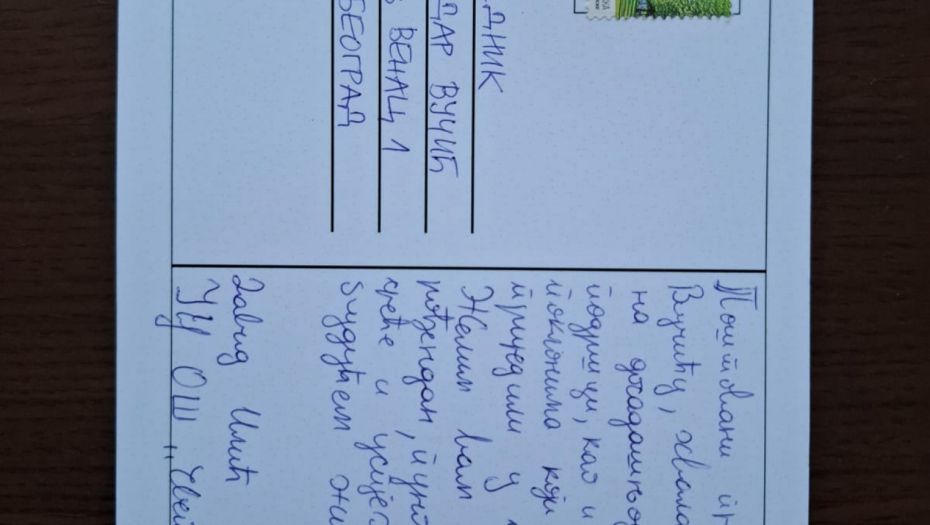 ДНИК
ДАР ВУЧИЋ
ВЕНАЦ 1
БЕОГРАД
Поштовани
Вучићу, хвала
на досадашњој
подршци, као и
поклонима које
приредили у
Желим вам
рођендан, пуно
среће и успјеха
будућем жи
Давид Илић
ОШ „Свети